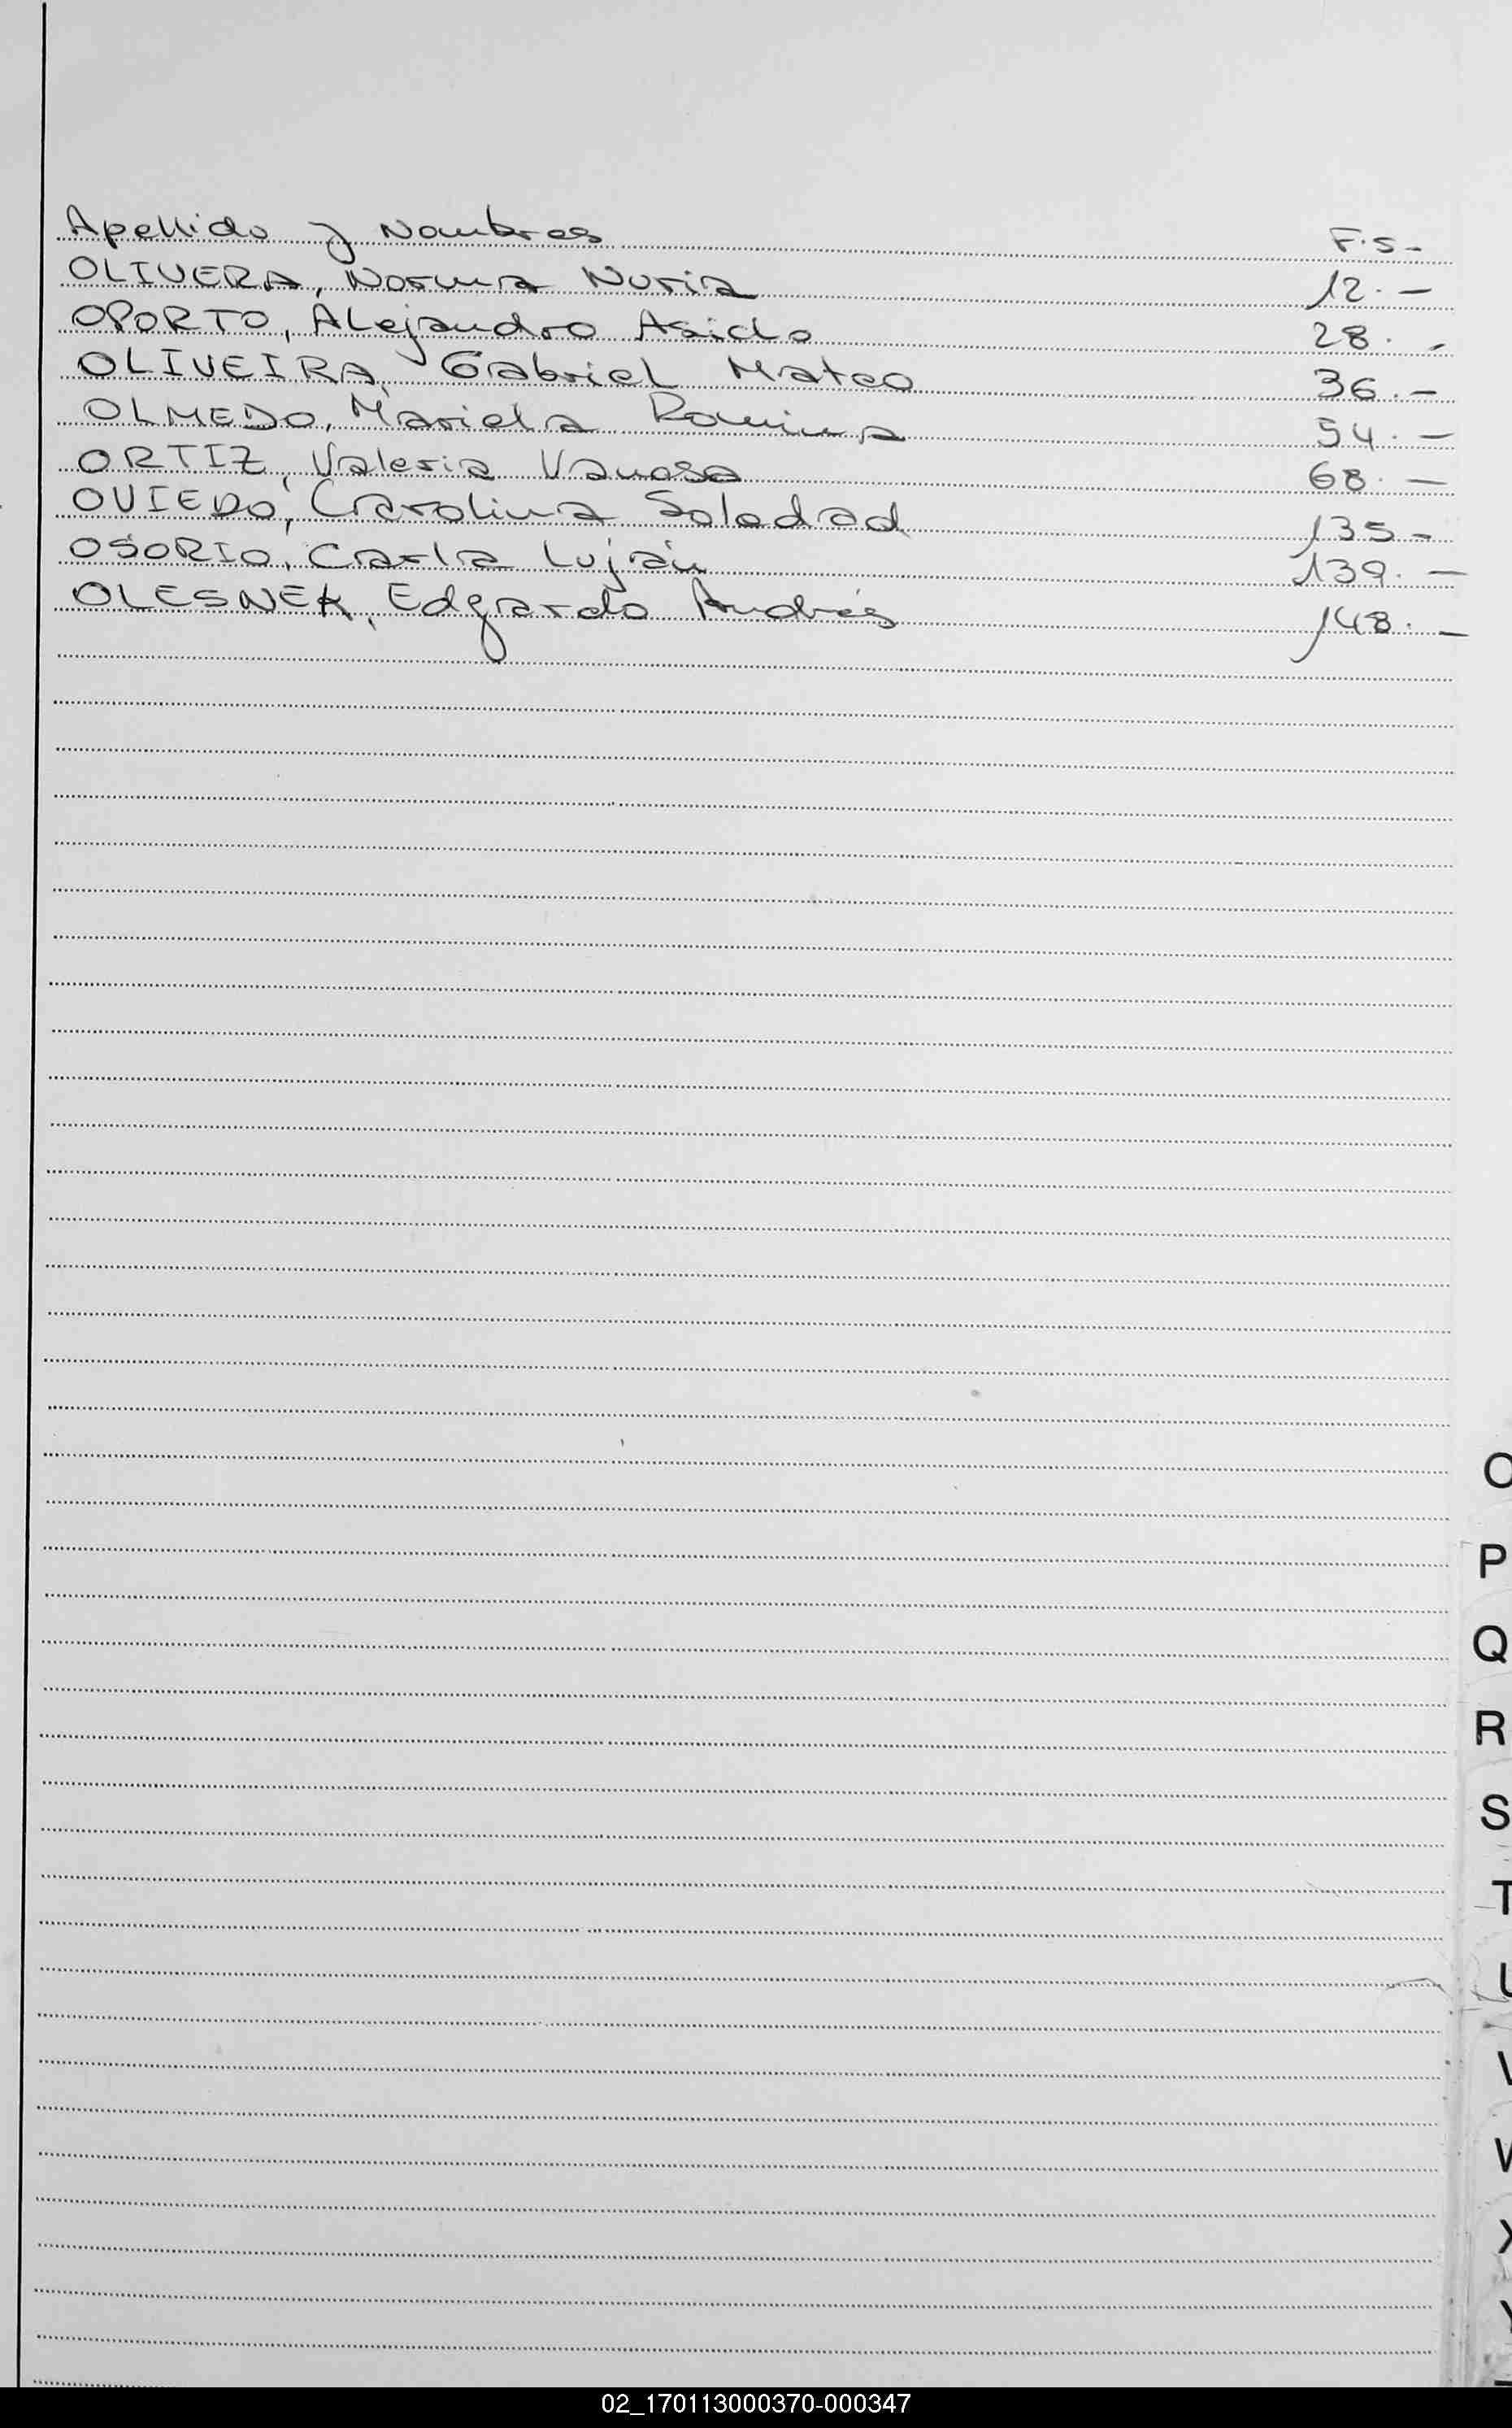 Apellido y Nombres F.S-
OLIVERA, Norma Nuria 12.-
OPORTO, Alejandro Asido 28.-
OLIVEIRA, Gabriel Mateo 36.-
OLMEDO, Mariela Romina 54.-
ORTIZ, Valeria Vanesa 68.-
OVIEDO, Carolina Soledad 135-
OSORIO, Carla Luján 139.-
OLESNEK, Edgardo Andrés 148.-
O
P
Q
R
S
T
U
V
W
X
Y
02_170113000370-000347